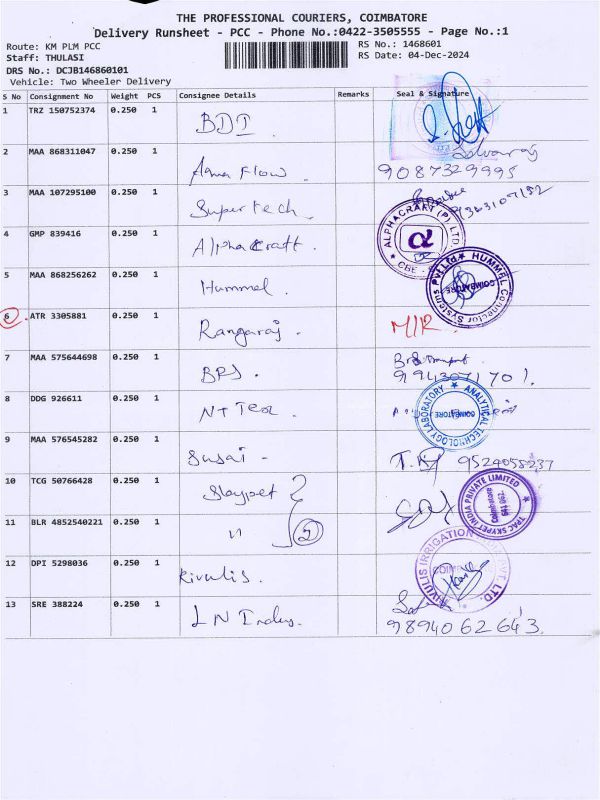 THE PROFESSIONAL COURIERS, COIMBATORE
Delivery Runsheet - PCC - Phone No.:0422-3505555 - Page No.:1
Route: KM PLM PCC
RS No.: 1468601
Staff: THULASI
RS Date: 04-Dec-2024
DRS No.: DCJB146860101
Vehicle: Two Wheeler Delivery
S No Consignment No Weight PCS Consignee Details Remarks Seal & Signature
1 TRZ 150752374 0.250 1 BDI
2 MAA 868311047 0.250 1 Aqua Flow. Selvaraj
9087329995
3 MAA 107295100 0.250 1 Supertech.
4 GMP 839416 0.250 1 Alphacraft. ALPHACRAFT (P) LTD. α CBE
5 MAA 868256262 0.250 1 Hummel. HUMMEL Connector Systems Pvt Ltd COIMBATORE
6 ATR 3305881 0.250 1 Rangaraj. M/R
7 MAA 575644698 0.250 1 BPS.
8 DDG 926611 0.250 1 NT Test. ANALYTICAL TECHNOLOGY LABORATORY COIMBATORE
9 MAA 576545282 0.250 1 Susai - 9524058237
10 TCG 50766428 0.250 1 Skypet TPAC SKYPET INDIA PRIVATE LIMITED Coimbatore
11 BLR 4852540221 0.250 1 " 2
12 DPI 5298036 0.250 1 Rivulis. RIVULIS IRRIGATION PVT. LTD.
13 SRE 388224 0.250 1 LN Indus.
9894062643.